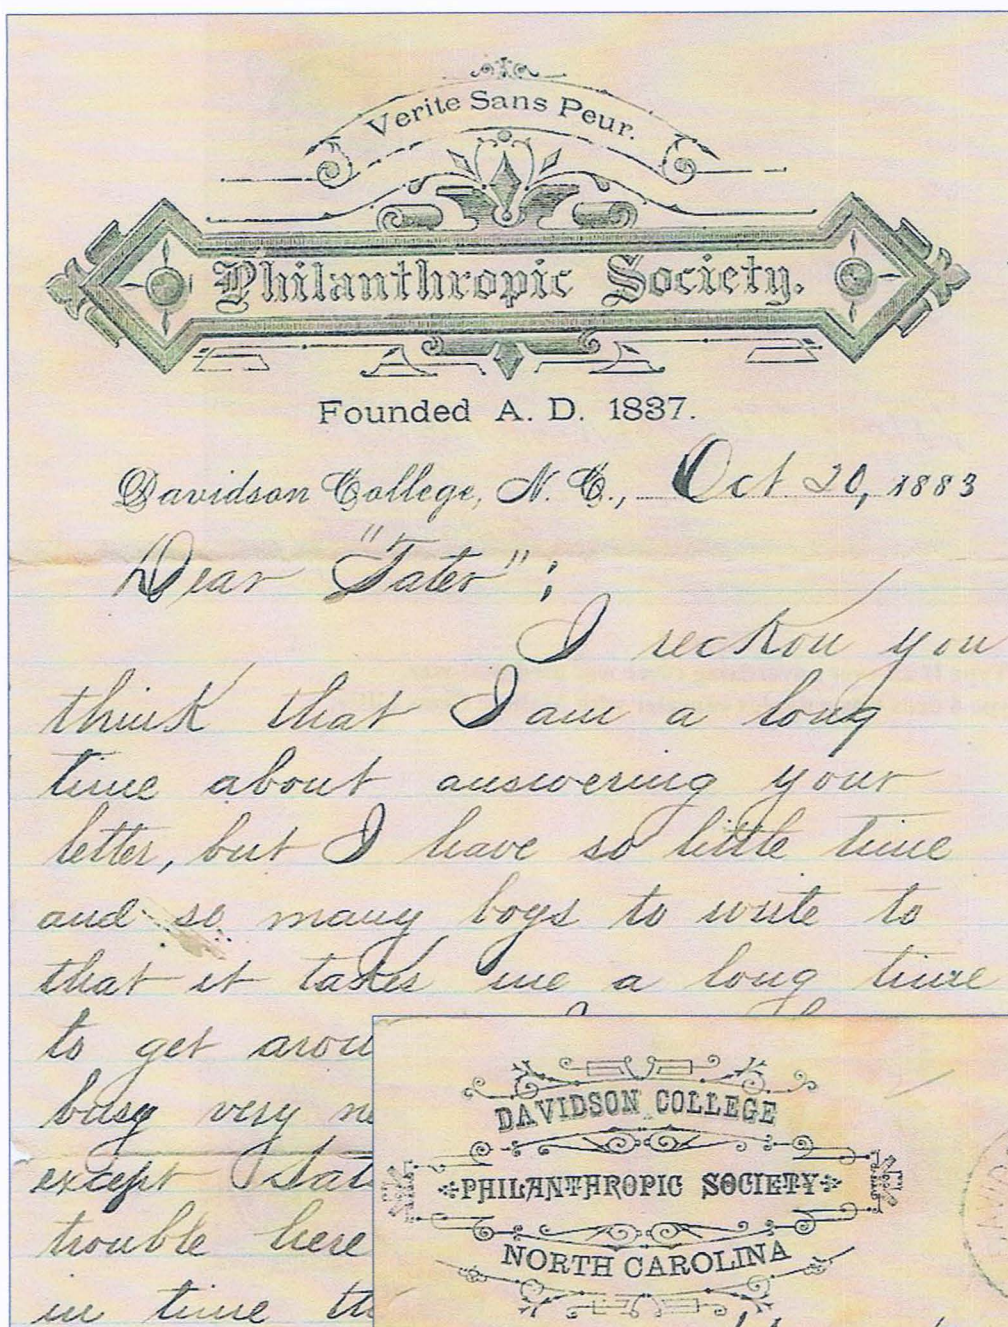 Verite Sans Peur.
Philanthropic Society.
Founded A. D. 1837.
Davidson College, N. C., Oct 20, 1883
Dear "Tater";
I reckon you
think that I am a long
time about answering your
letter, but I have so little time
and so many boys to write to
that it takes me a long time
to get
busy very
except
trouble here
in time
DAVIDSON COLLEGE
PHILANTHROPIC SOCIETY
NORTH CAROLINA